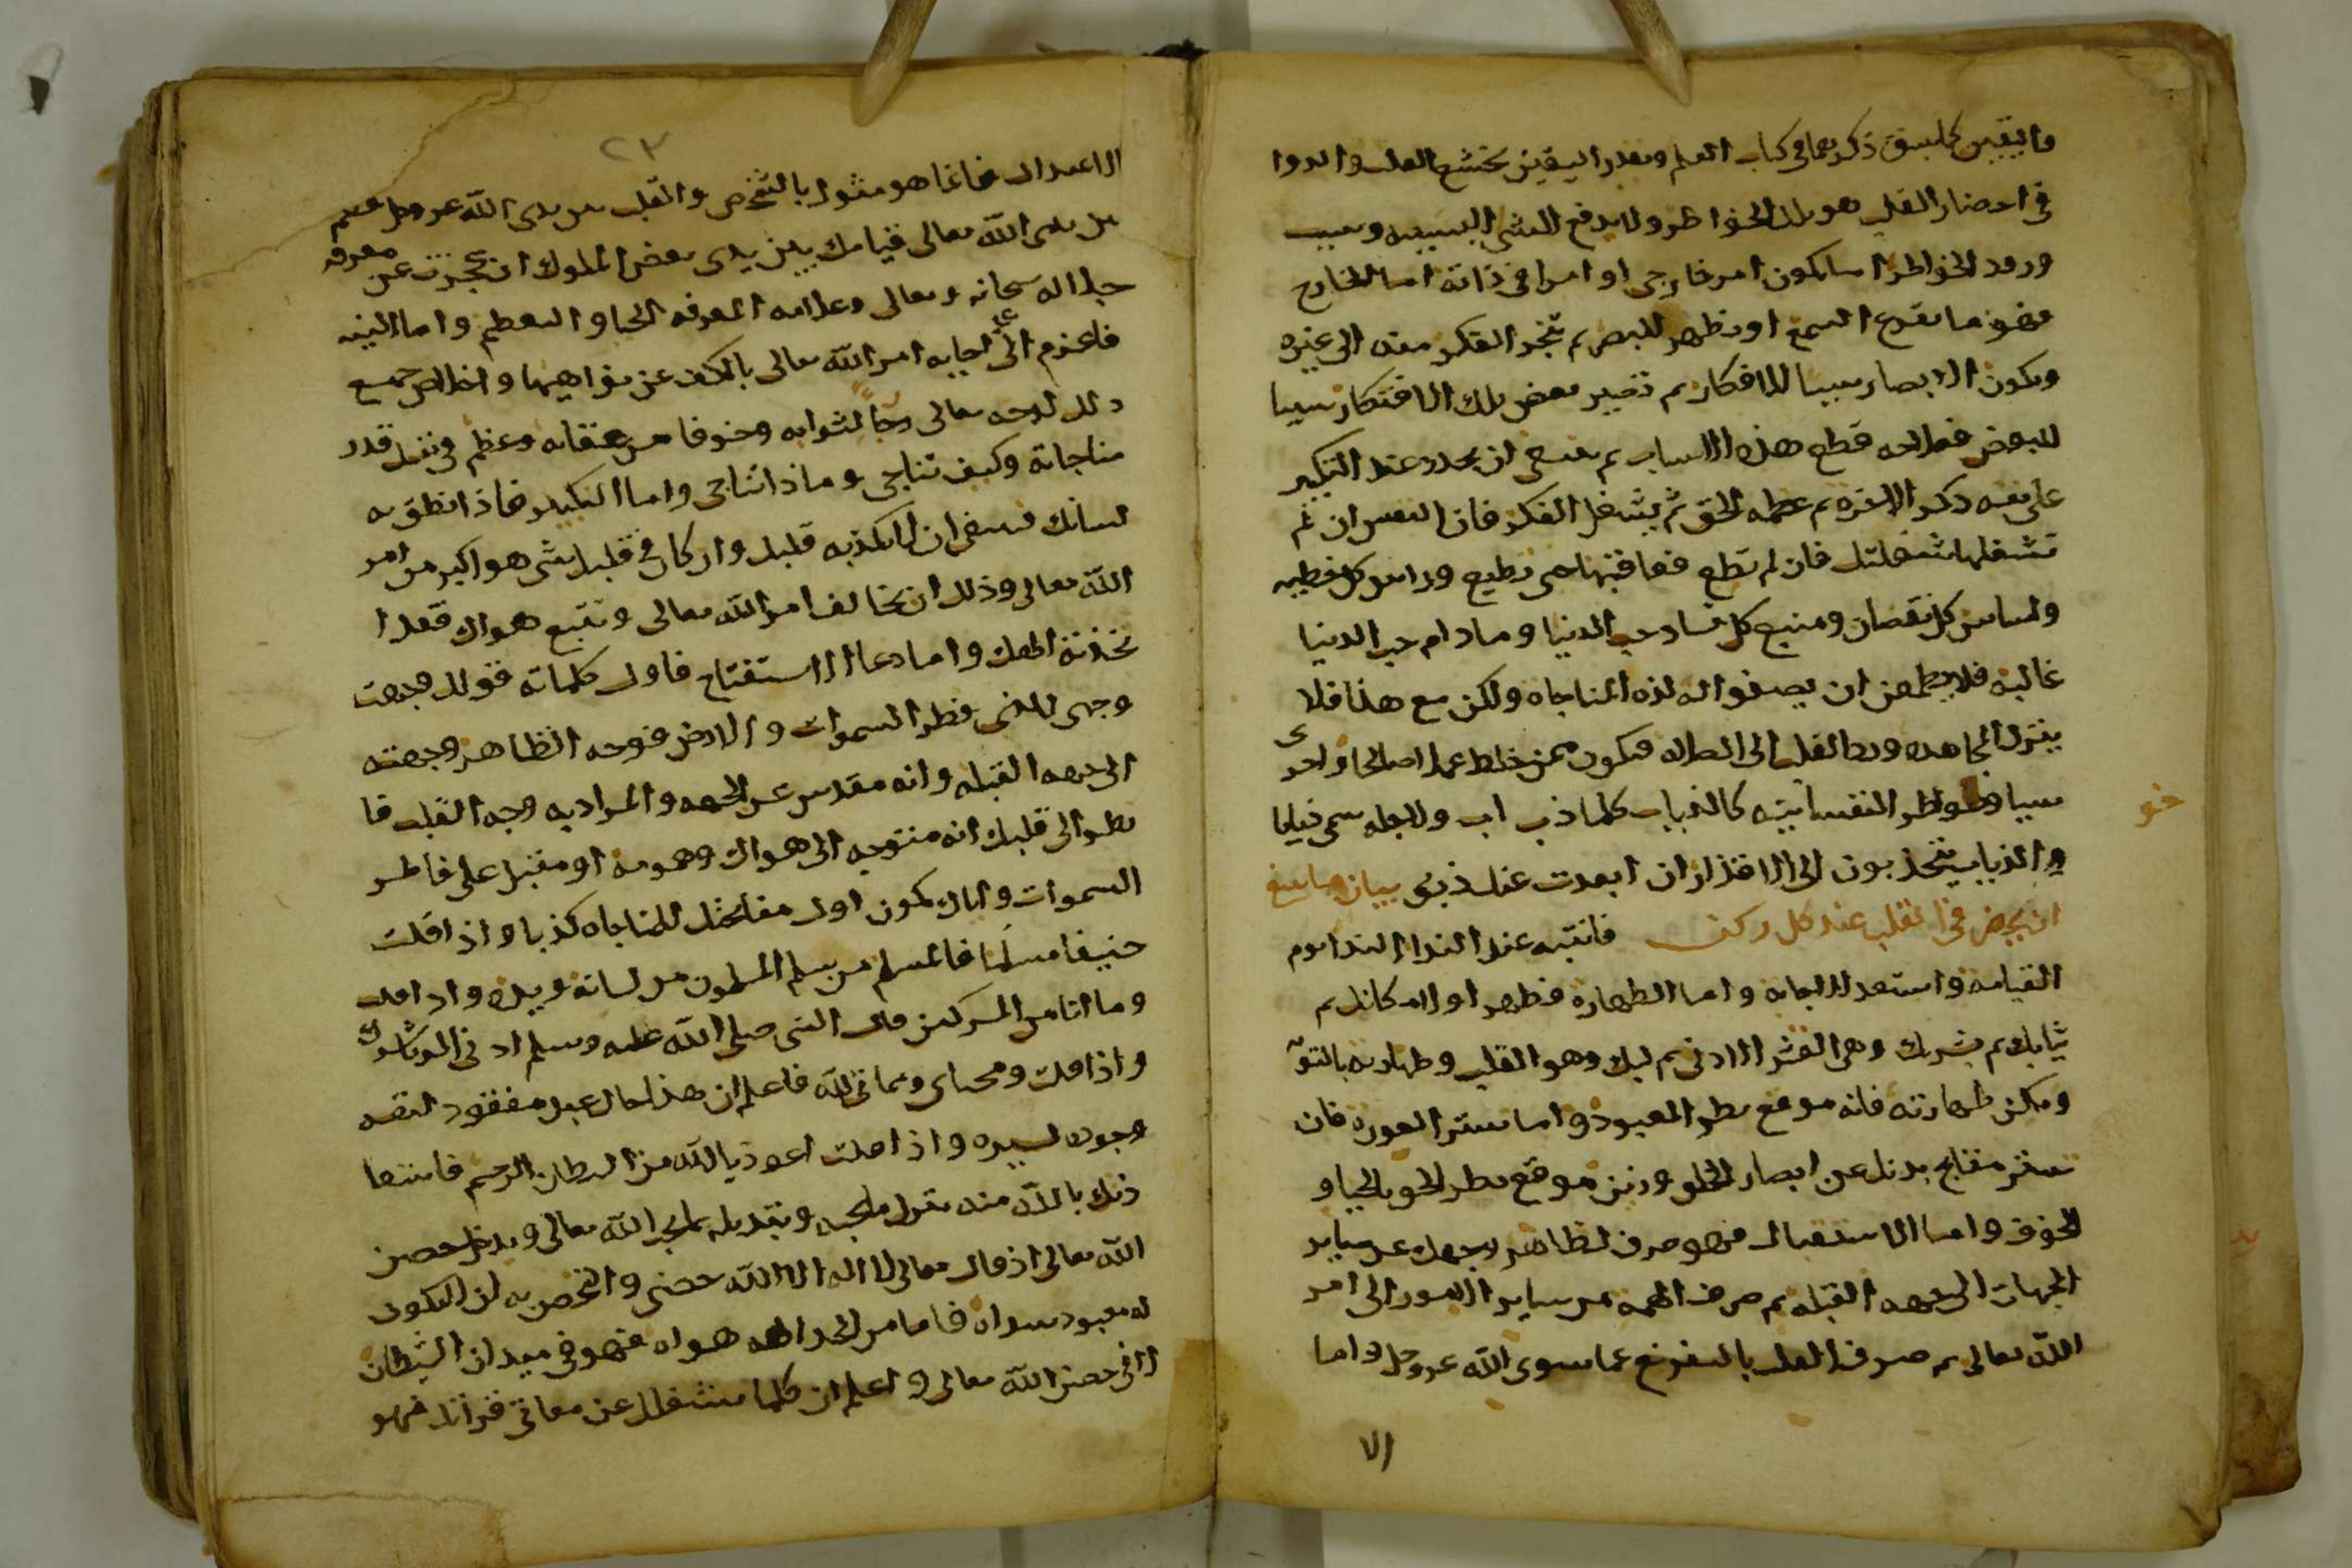 واليقين كما سبق ذكرهما في كتاب العلم وبقدر اليقين يخشع القلب والدوا
في احضار القلب هو تلك الخواطر ولا يدفع الشي الا بسببه وسبب
ورود الخواطر اما يكون امر خارجى او امرا في ذاته اما الخارج
فهو ما يقرع السمع او يظهر للبصر ثم تنجر الفكر منه الى غيره
ويكون الابصار سببا للافكار ثم تصير بعض تلك الافتكار سببا
للبعض فعلاجه قطع هذه الاسباب ثم ينبغى ان يجدد عند التكبير
على نفسه ذكر الاخره ثم عظمه الحق ثم يشغل الفكر فان النفس ان لم
تشغلها شغلتك فان لم تطع فعاقبها حتى تطيع وراس كل خطيه
واساس كل نقصان ومنبع كل فساد حب الدنيا وما دام حب الدنيا
غالبه فلا يطمعن ان يصفوا له لذه المناجاه ولكن مع هذا فلا
يترك المجاهده ورد القلب الى الصلاه فيكون ممن خلط عملا صالحا واخر
سيا وخواطر النفسانيه كالذباب كلما ذب اب ولاجله سمى ذبابا
والذباب ينجذبون الى الاقذار ان ابعدت عنك ذبى بيان ما ينبغي
ان يحضر في القلب عند كل ركن فانتبه عند الندا الندا يوم
القيامه واستعد للاجابه واما الطهاره فطهر اولا مكانك ثم
ثيابك ثم بشرتك وهى القشر الادنى ثم لبك وهو القلب وطهارته بالتوبه
ويمكن طهارته فانه موقع نظر المعبود واما ستر العوره فان
تستر مقابح بدنك عن ابصار الخلق وزين موقع نظر الحق بالحيا و
الخوف واما الاستقبال فهو صرف لظاهر وجهك عن ساير
الجهات الى جهه القبله ثم صرف الهمه عن ساير الامور الى امر
الله تعالى ثم صرف القلب بالتفرغ عما سوى الله عز وجل واما
الا
خو
٢٣
الاعتدال فانما هو مثول بالشخص والقلب بين يدى الله عز وجل فقم
بين يدى الله تعالى قيامك بين يدى بعض الملوك ان عجزت عن معرفه
جلاله سبحانه وتعالى وعلامه المعرفه الحيا والتعظيم واما النيه
فاعزم على اجابه امر الله تعالى بالكف عن نواهيها واخلاص جميع
ذلك لوجهه تعالى رجاً لثوابه وخوفا من عقابه وعظم في نفسك قدر
مناجاته وكيف تناجى وماذا تناجى واما التكبير فاذا نطق به
لسانك فينبغى ان لا يكذبه قلبك وان كان في قلبك شى هو اكبر من امر
الله تعالى وذلك ان تخالف امر الله تعالى وتتبع هواك فقد ا
تخذته الهك واما دعا الاستفتاح فاول كلماته قولك وجهت
وجهى للذى فطر السموات والارض فوجه الظاهر وجهته
الى جهه القبله وانه مقدس عن الجهه والمراد به وجه القلب فا
نظر الى قلبك انه متوجه الى هواك وهمومه او مقبل على فاطر
السموات واياك يكون اول مفاتحتك للمناجاه كذبا واذا قلت
حنيفا مسلما فالمسلم من سلم المسلمون من لسانه ويده واذا قلت
وما انا من المشركين قال النبى صلى الله عليه وسلم ادنى الريا شرك
واذا قلت ومحياى ومماتى لله فاعلم ان هذا حال عبد مفقود لنفسه
وجوده لسيده واذا قلت اعوذ بالله من الشيطان الرجيم فاستعا
ذتك بالله منه بترك ما يحبه وتبديله بما يحب الله تعالى ويدخل حصن
الله تعالى اذ قال تعالى لا اله الا الله حصنى والتحصن به ان لا يكون
له معبود سواه فاما من اتخذ الهه هواه فهو في ميدان الشيطان
لا في حصن الله تعالى واعلم ان كلما يشغلك عن معانى قراتك فهو